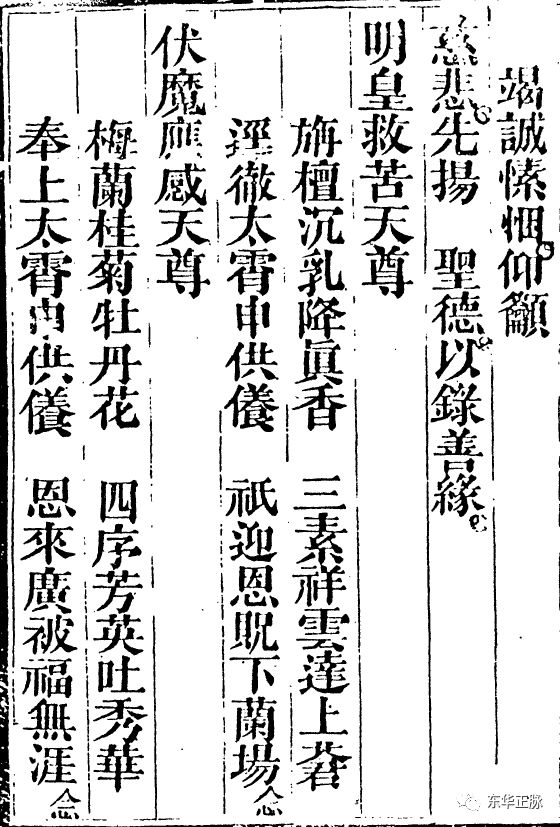 竭誠愫悃仰籲
慈悲先揚 聖德以錄善緣
明皇救苦天尊
旃檀沉乳降眞香 三素祥雲達上蒼
逕徹太霄申供儀 祇迎恩貺下蘭場 念
伏魔應感天尊
梅蘭桂菊牡丹花 四序芳英吐秀華
奉上太霄申供儀 恩來廣被福無涯 念
东华正脉